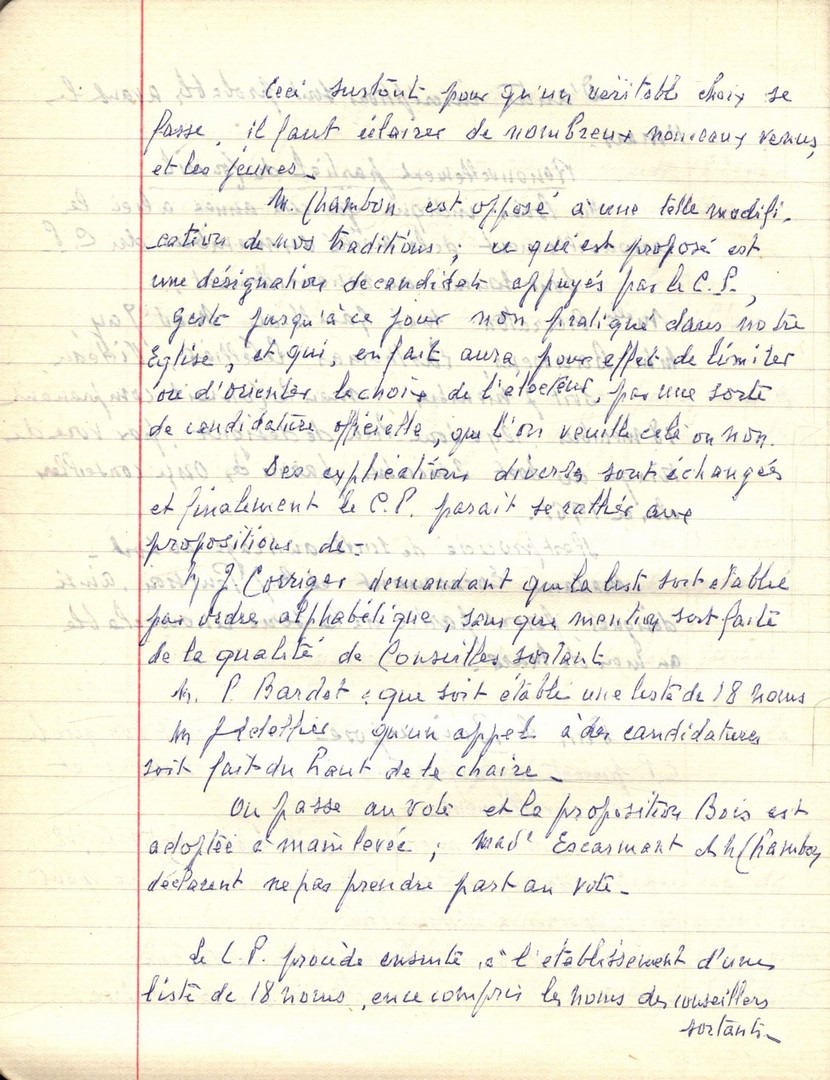 Ceci surtout pour qu'un véritable choix se
fasse, il faut éclairer de nombreux nouveaux venus,
et les jeunes -
M. Chambon est opposé à une telle modifi-
cation de nos traditions ; ce qui est proposé est
une désignation de candidats appuyés par le C.P.,
geste jusqu'à ce jour non pratiqué dans notre
Eglise, et qui, en fait aura pour effet de limiter
ou d'orienter le choix de l'électeur, par une sorte
de candidature officielle, que l'on veuille cela ou non.
Des explications diverses sont échangées
et finalement le C.P. parait se rallier aux
propositions de -
M. J. Corriger demandant que la liste soit établie
par ordre alphabétique, sans que mention soit faite
de la qualité de Conseillers sortants
M. P. Bardet : que soit établie une liste de 18 noms
M qu'un appel à des candidatures
soit fait du haut de la chaire -
On passe au vote et la proposition Bois est
adoptée à main levée ; Mad^e Escarmant et M Chambon
déclarent ne pas prendre part au vote -
Le C.P. procède ensuite à l'établissement d'une
liste de 18 noms, en ce compris les noms des conseillers
sortants -